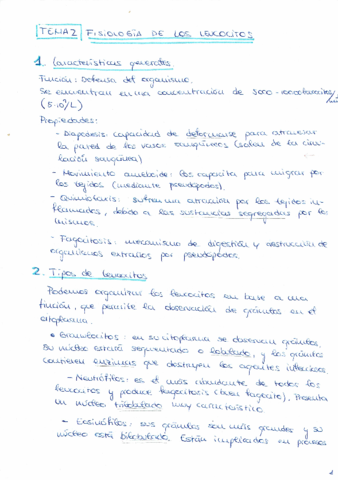 TEMA 2 FISIOLOGÍA DE LOS LEUCOCITOS
1. Características generales
Función: Defensa del organismo.
Se encuentran en una concentración de 5000-10000
(5·10⁹/L)
Propiedades:
- Diapédesis: capacidad de deformarse para atravesar
la pared de los vasos sanguíneos (salen de la circu-
lación sanguínea)
- Movimiento ameboide: los capacita para migrar por
los tejidos (mediante pseudópodos).
- Quimiotaxis: sufren una atracción por los tejidos in-
flamados, debido a las sustancias segregadas por los
mismos.
- Fagocitosis: mecanismo de digestión y destrucción de
organismos extraños por pseudópodos.
2. Tipos de leucocitos
Podemos organizar los leucocitos en base a una
tinción, que permite la observación de gránulos en el
citoplasma.
• Granulocitos: en su citoplasma se observan gránulos.
Su núcleo estará segmentado o lobulado, y los gránulos
contienen enzimas que destruyen los agentes infecciosos
- Neutrófilos: es el más abundante de todos los
leucocitos y produce fagocitosis (buen fagocito). Presenta
un núcleo trilobulado muy característico
- Eosinófilos: sus gránulos son más grandes y su
núcleo está bilobulado. Están implicados en procesos
1